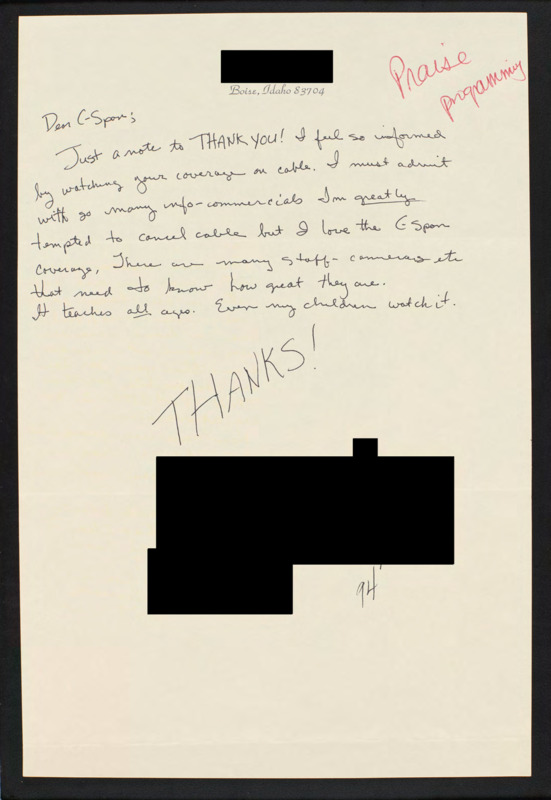 Boise, Idaho 83704
Praise
programming
Dear C-Span;
Just a note to THANK YOU! I feel so informed
by watching your coverage on cable. I must admit
with so many info-commercials I'm greatly
tempted to cancel cable but I love the C-Span
coverage. There are many staff- cameras etc
that need to know how great they are.
It teaches all ages. Even my children watch it.
THANKS!
94'